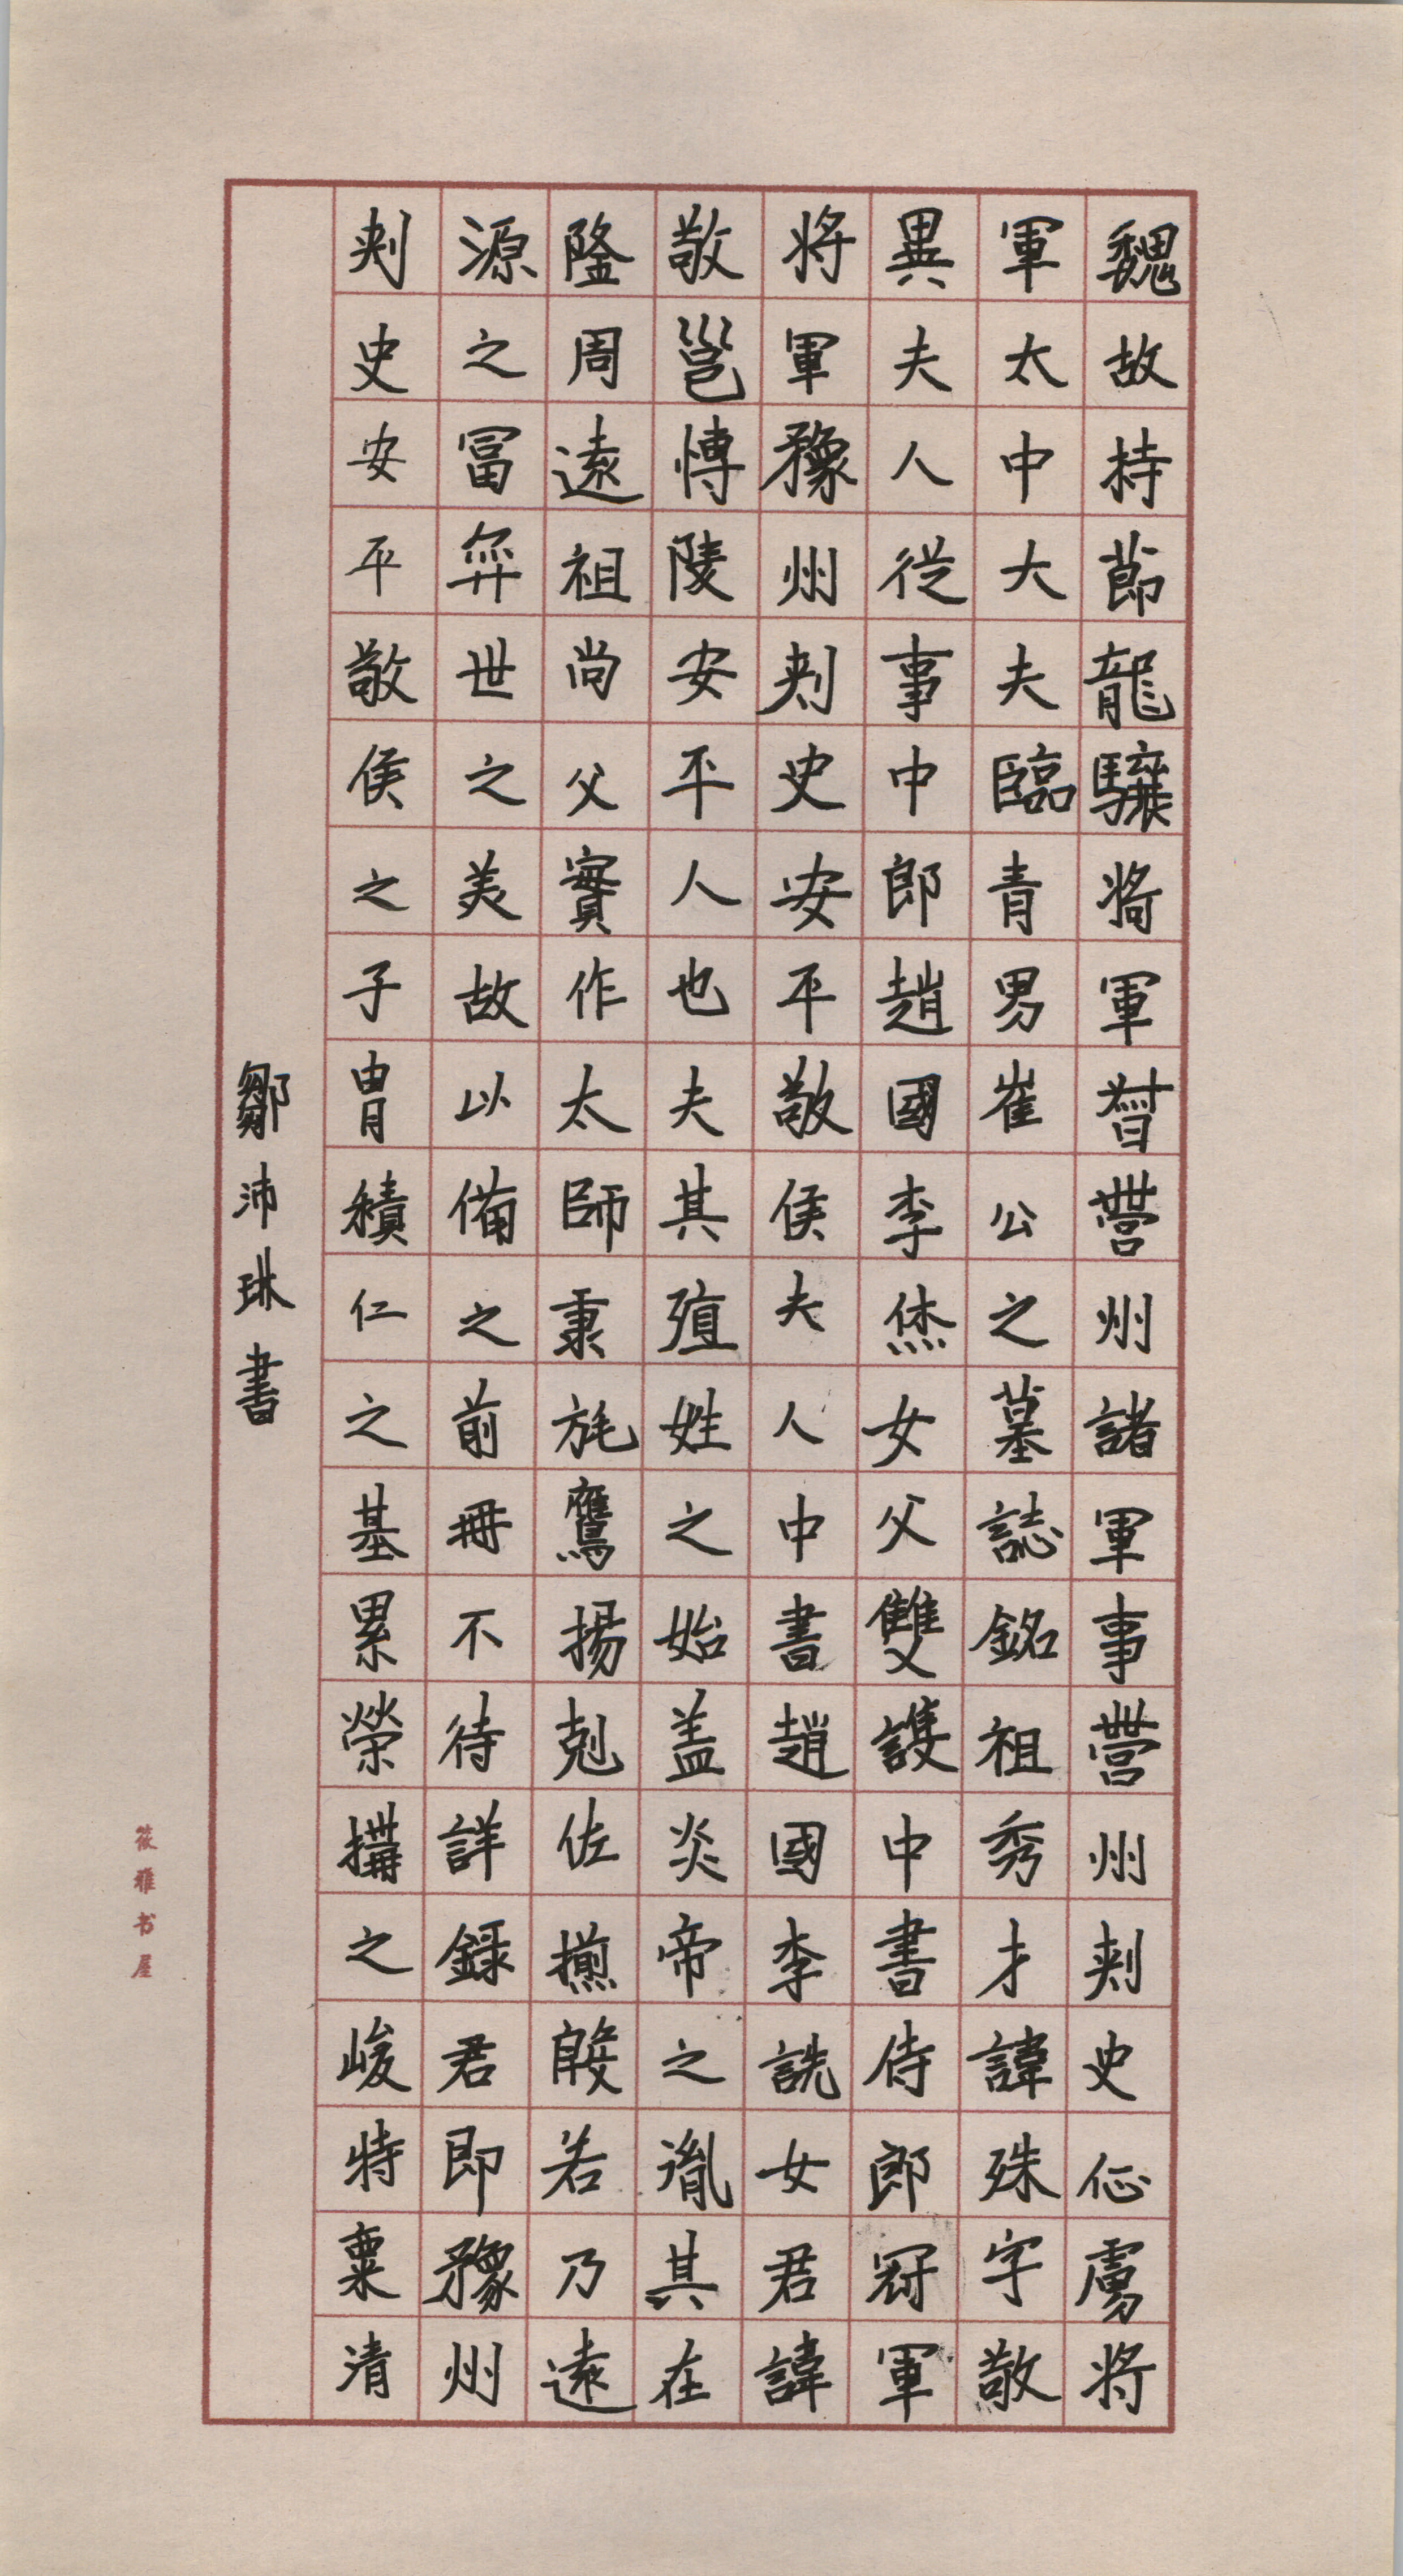 魏故持節龍驤將軍督營州諸軍事營州刺史征虜將
軍太中大夫臨青男崔公之墓誌銘祖秀才諱殊字敬
異夫人從事中郎趙國李烋女父雙護中書侍郎冠軍
將軍豫州刺史安平敬侯夫人中書趙國李詵女君諱
敬邕博陵安平人也夫其殖姓之始蓋炎帝之胤其在
隆周遠祖尚父實作太師秉旄鷹揚剋佐揃殷若乃遠
源之富弈世之美故以備之前冊不待詳錄君即豫州
刺史安平敬侯之子胄積仁之基累榮構之峻特稟清
鄒沛琳書
筱雅书屋